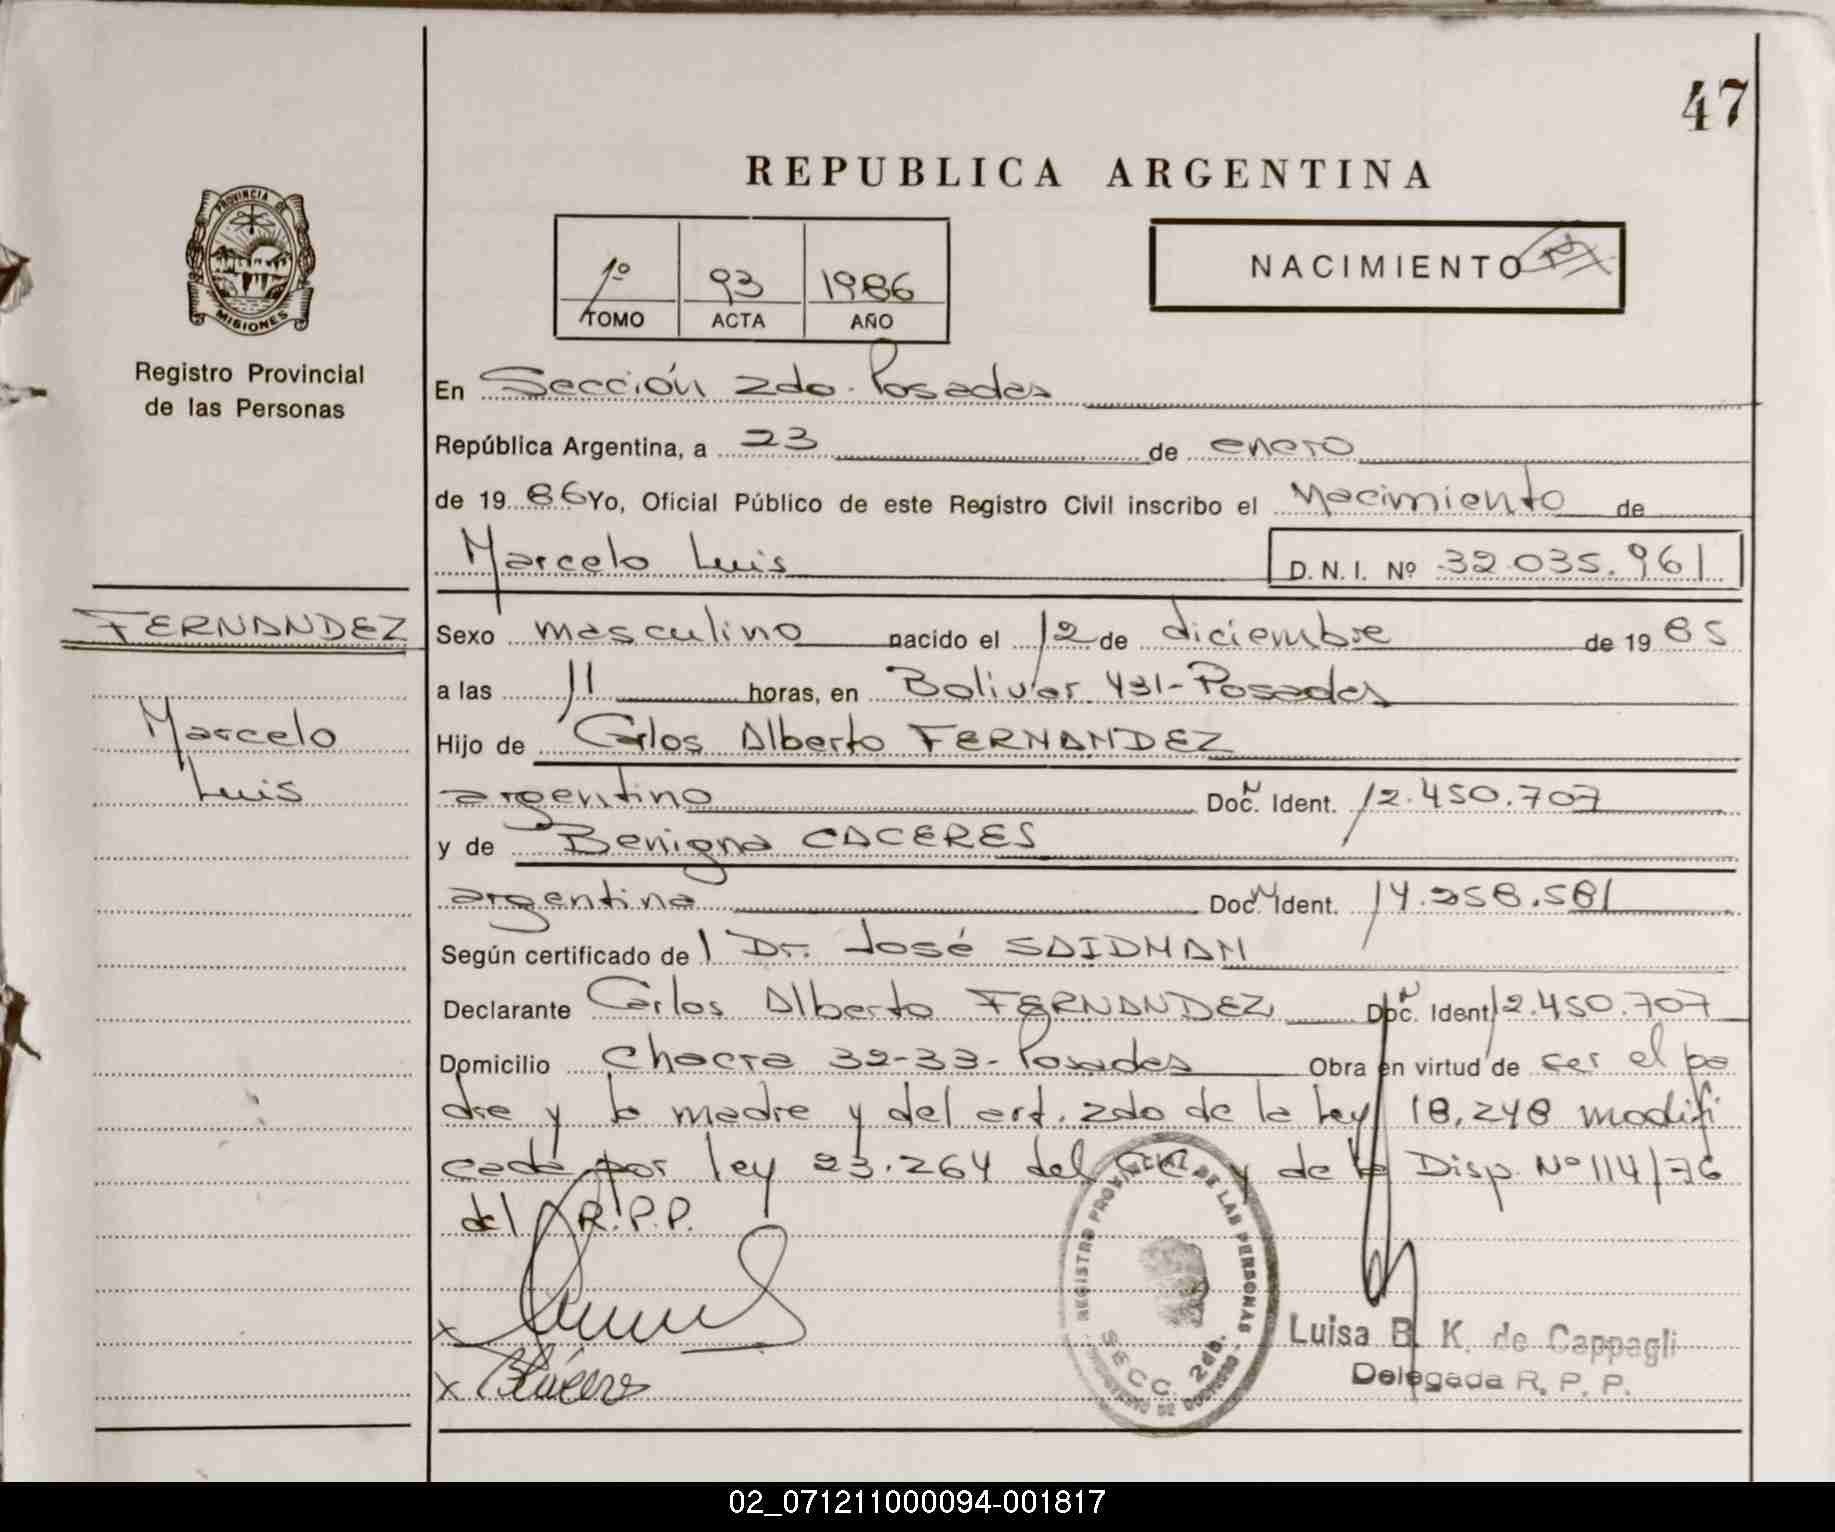 47
REPUBLICA ARGENTINA
PROVINCIA DE
MISIONES
Registro Provincial
de las Personas
1º 93 1986
TOMO ACTA AÑO
NACIMIENTO
En Sección 2do. Posadas
República Argentina, a 23 de enero
de 1986 Yo, Oficial Público de este Registro Civil inscribo el Nacimiento de
Marcelo Luis D.N.I. Nº 32.035.961
FERNANDEZ
Marcelo
Luis
Sexo masculino nacido el 12 de diciembre de 1985
a las 11 horas, en Bolivar 431-Posadas
Hijo de Carlos Alberto FERNANDEZ
argentino Doc. Ident. 12.450.707
y de Benigna CACERES
argentina Doc. Ident. 14.258.581
Según certificado de l Dr. José SAIDMAN
Declarante Carlos Alberto FERNANDEZ Doc. Ident 12.450.707
Domicilio Chacra 32-33-Posadas Obra en virtud de ser el pa
dre y la madre y del art. 2do de la Ley 18.248 modifi
cada por ley 23.264 del CC y de la Disp. Nº 114/76
del R.P.P.
REGISTRO PROVINCIAL DE LAS PERSONAS
SECC. 2da.
Luisa B. K. de Cappagli
Delegada R. P. P.
02_071211000094-001817